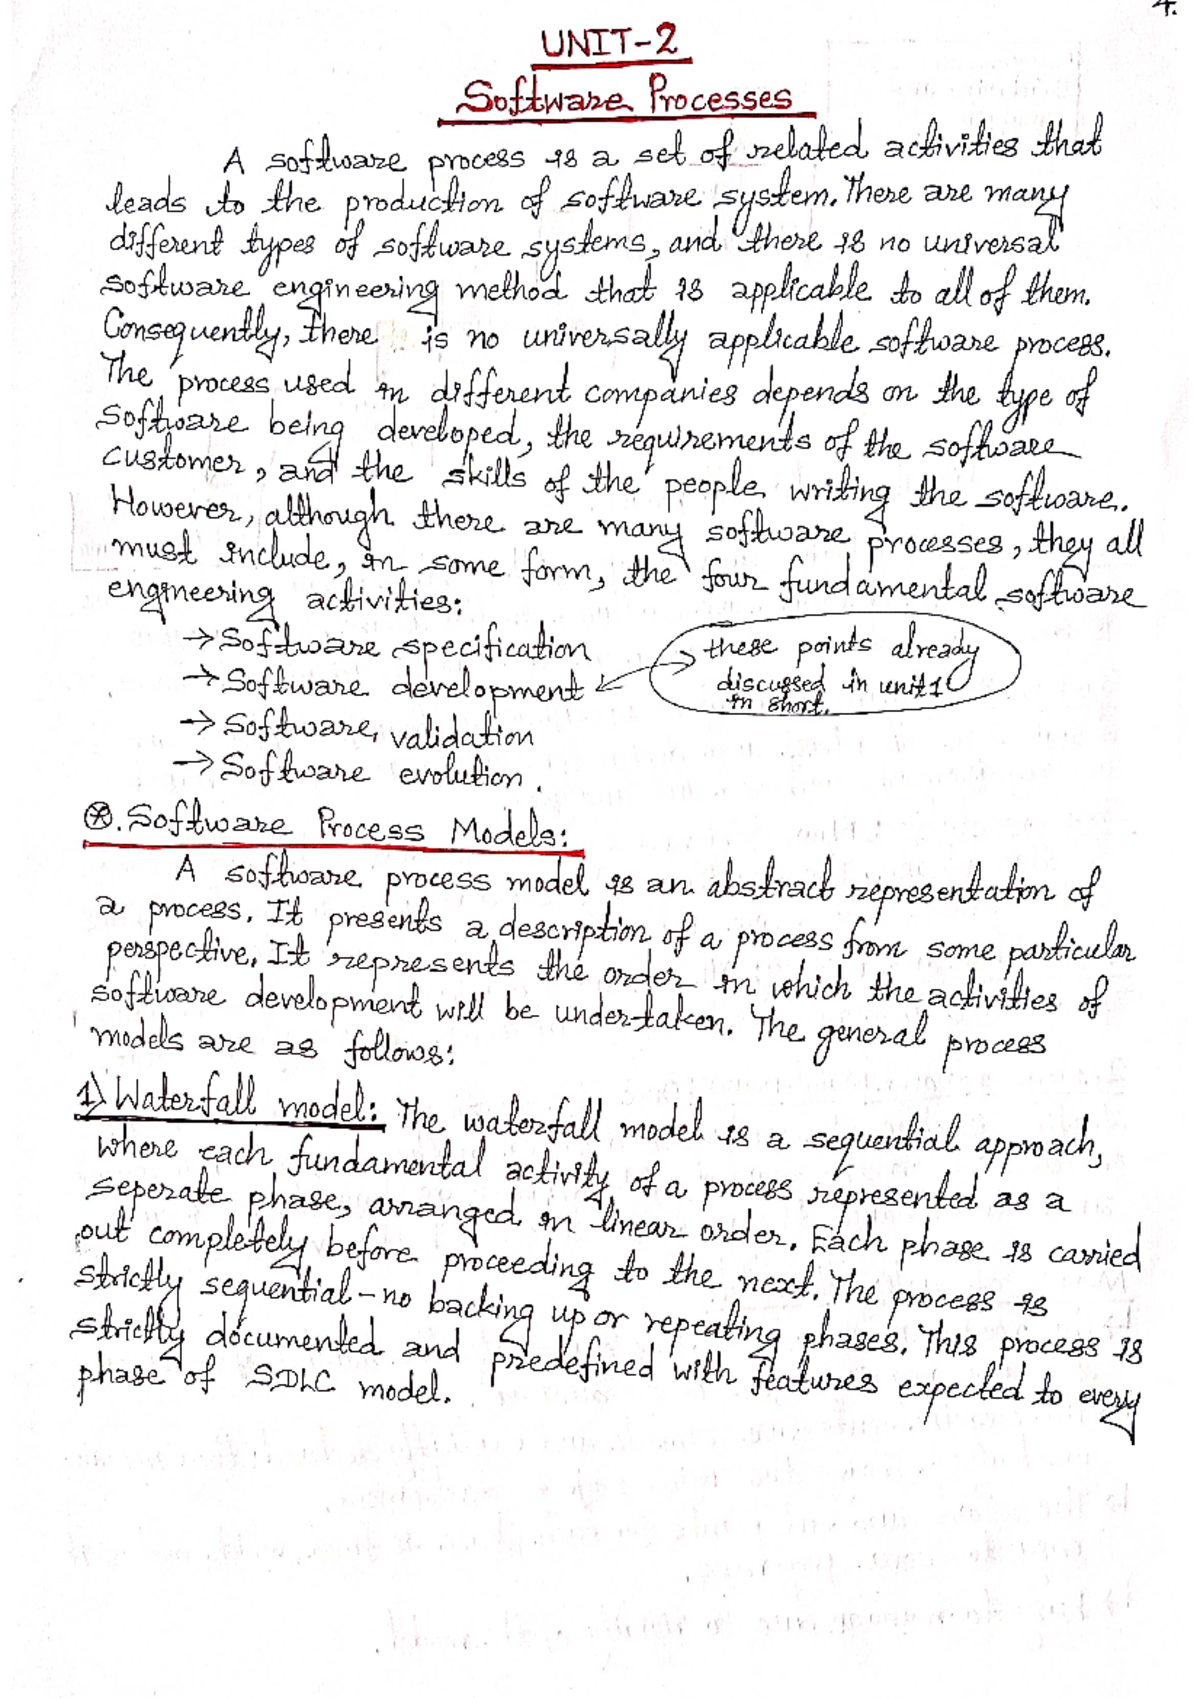 4.
UNIT-2
Software Processes
A software process is a set of related activities that
leads to the production of software system. There are many
different types of software systems, and there is no universal
software engineering method that is applicable to all of them.
Consequently, there is no universally applicable software process.
The process used in different companies depends on the type of
software being developed, the requirements of the software
customer, and the skills of the people writing the software.
However, although there are many software processes, they all
must include, in some form, the four fundamental software
engineering activities:
→ Software specification
→ Software development
→ Software validation
→ Software evolution.
these points already
discussed in unit 1
in short.
⊛. Software Process Models:
A software process model is an abstract representation of
a process. It presents a description of a process from some particular
perspective. It represents the order in which the activities of
software development will be undertaken. The general process
models are as follows:
1) Waterfall model: The waterfall model is a sequential approach,
where each fundamental activity of a process represented as a
seperate phase, arranged in linear order. Each phase is carried
out completely before proceeding to the next. The process is
strictly sequential - no backing up or repeating phases. This process is
strictly documented and predefined with features expected to every
phase of SDLC model.